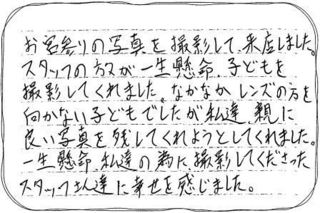 お宮参りの写真を撮影して、来店しました。
スタッフの方が一生懸命、子どもを
撮影してくれました。なかなかレンズの方を
向かない子どもでしたが私達、親に
良い写真を残してくれようとしてくれました。
一生懸命私達の為に撮影してくださった
スタッフさん達に幸せを感じました。